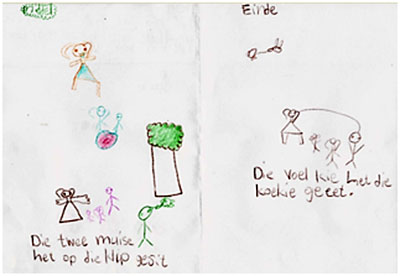 Die twee muise
het op die klip gesit
Einde
Die voel kie het die
koekie geeet.